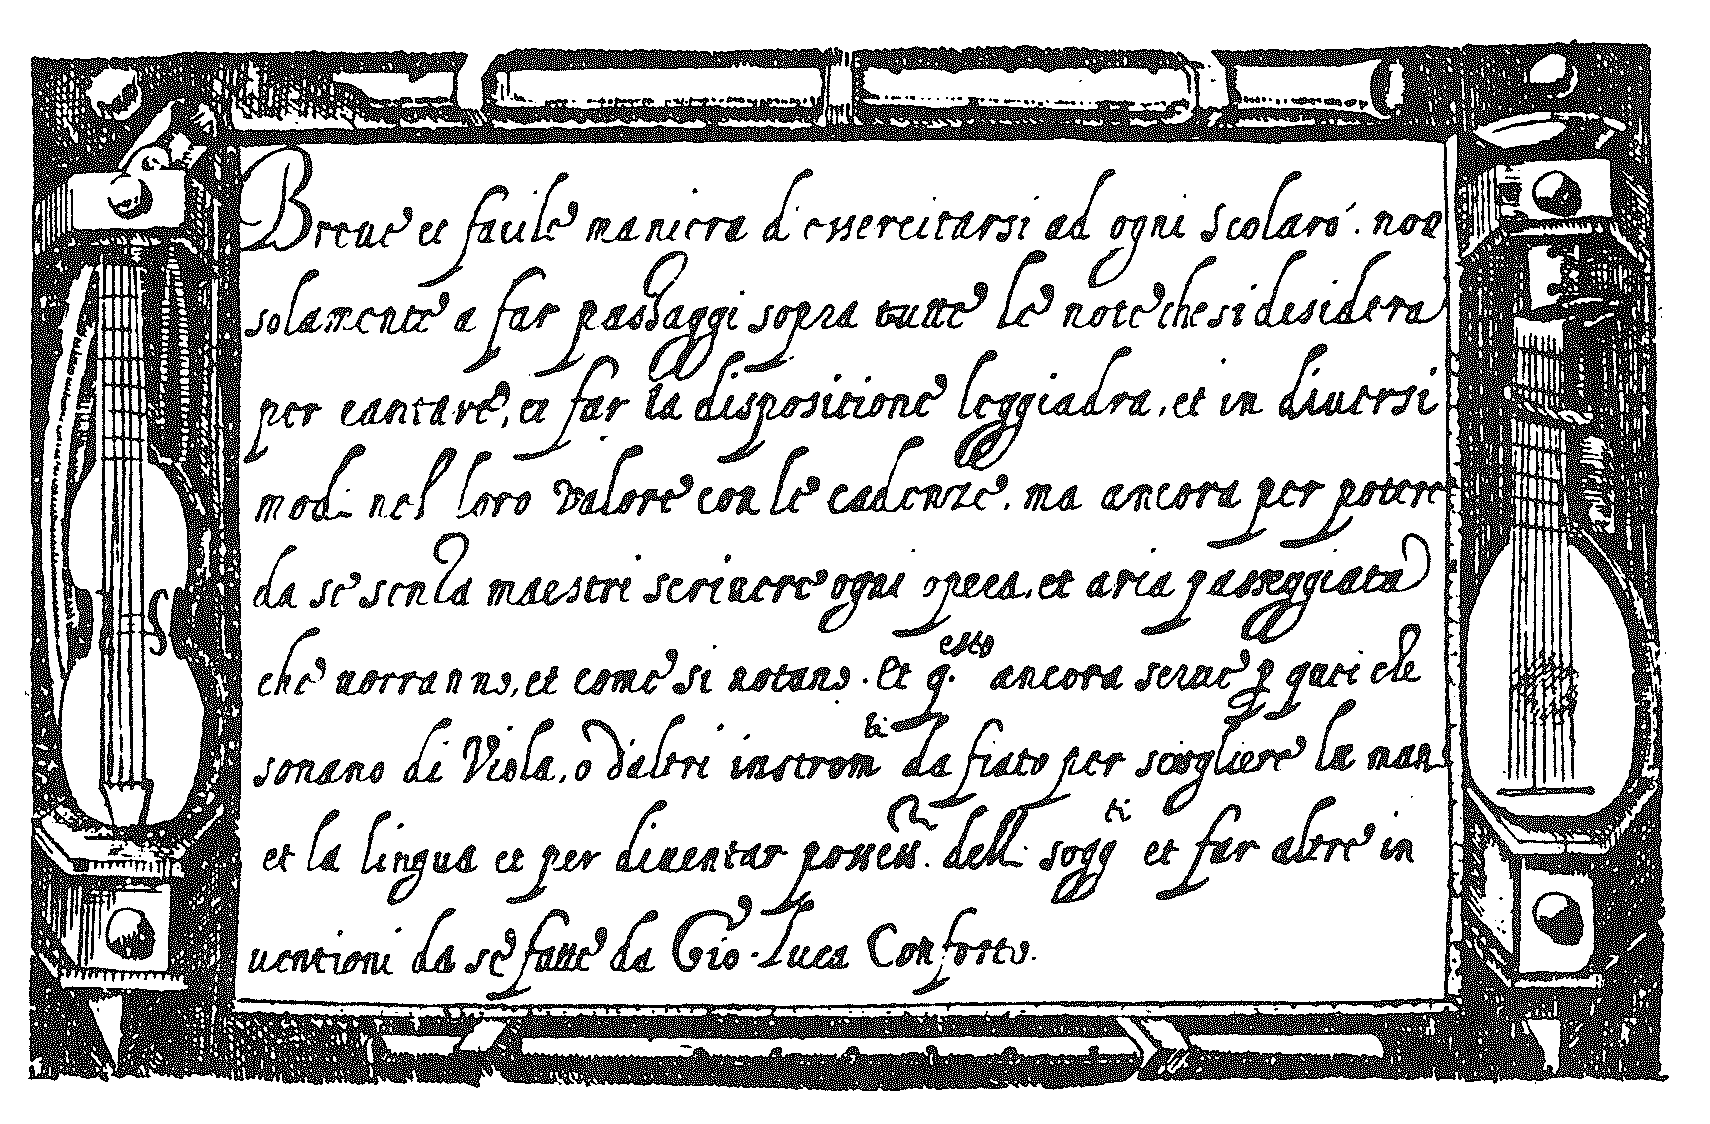 Breue et facile maniera d'essercitarsi ad ogni scolaro. non
solamente a far passaggi sopra tutte le note che si desidera
per cantare, et far la dispositione leggiadra, et in diuersi
modi nel loro valore con le cadenze, ma ancora per potere
da se senza maestri scriuere ogni opera, et aria passeggiata
che uorranno, et come si notano. Et q.esto ancora serue p quei che
sonano di Viola, o d'altri instromti da fiato per sciogliere la man
et la lingua et per diuentar possess. delli soggti et far altre in
uentioni da se fatte da Gio. Luca Conforto.